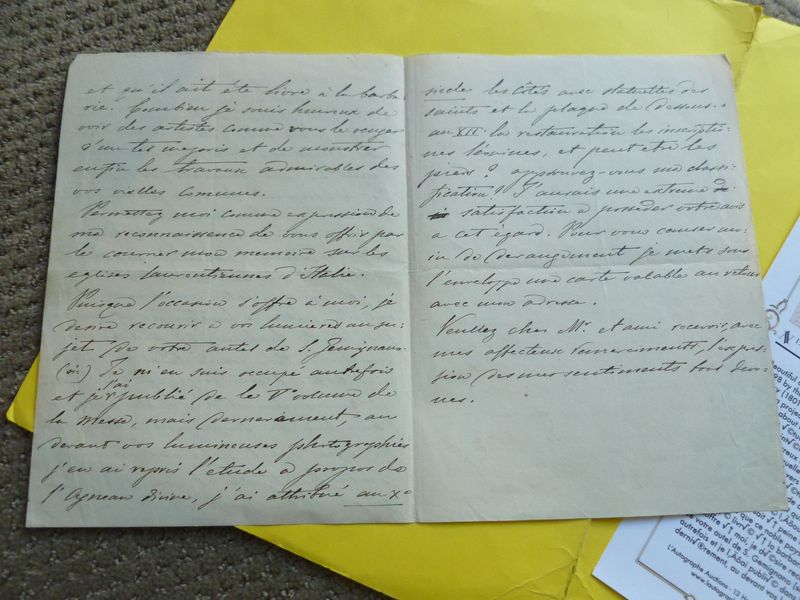 et qu'il ait été livré à la barba-
rie. Combien je suis heureux de
voir des artistes comme vous le venger
d'un tel mepris et de montrer
enfin les travaux admirables des
vos vielles communes.
Permettez moi comme expression de
ma reconnaissance de vous offrir par
le courrier mon memoire sur les
eglises laurentiennes d'Italie.
Puisque l'occasion s'offre à moi, je
desire recourir a vos lumieres au su-
jet de votre autel de S. Gemignano
(sic) Je m'en suis occupé autrefois
et je l'ai publié de le Vᵉ volume de
la Messe, mais dernerement, au
devant vos lumineuses photographies
j'en ai repris l'etude a propos de
l'Agneau divine, j'ai attribué au Xᵉ
siecle les côtés avec statuettes des
saints et la plaque de dessous.
au XIIᵉ la restauration les inscriptio-
nes léonines, et peut etre les
piers? approuvez-vous ma classi-
fication? J'aurais une extreme
satisfaction a posseder votre avis
a cet égard. Pour vous causer mo-
in de derangement je mets sous
l'enveloppe une carte valable au retour
avec mon adresse.
Veuillez cher Mr. et ami recevoir, avec
mes affecteuse remerciments, l'expres-
sion des mes sentiments tout devo-
nes.
Beautiful
98 by th
ry (1801
a projec
about
autrefois et je l
L'Autographe Auctions - 13 H
www.lautog